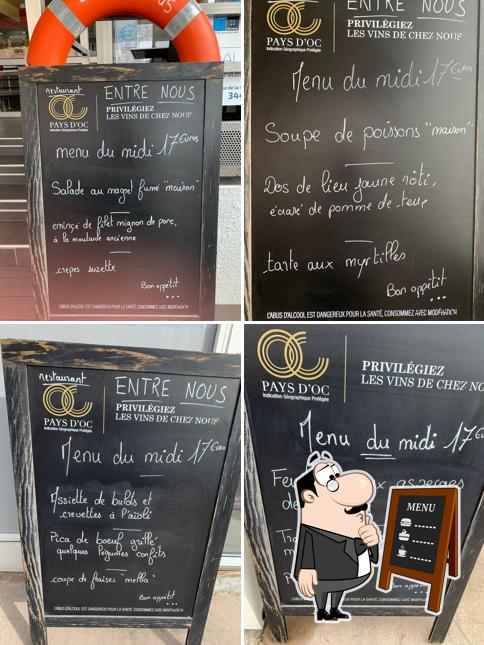 restaurant ENTRE NOUS
PRIVILÉGIEZ
LES VINS DE CHEZ NOUS
PAYS D'OC
Indication Géographique Protégée
menu du midi 17 Euros
Salade au magret fumé "maison"
émincé de filet mignon de porc,
à la moutarde ancienne
crêpes suzette
Bon appétit
...
L'ABUS D'ALCOOL EST DANGEREUX POUR LA SANTÉ, CONSOMMEZ AVEC MODÉRATION
ENTRE NOUS
PRIVILÉGIEZ
LES VINS DE CHEZ NOUS
PAYS D'OC
Indication Géographique Protégée
Menu du midi 17 Euros
Soupe de poissons "maison"
Dos de lieu jaune rôti,
écrasé de pomme de terre
tarte aux myrtilles
Bon appétit
...
L'ABUS D'ALCOOL EST DANGEREUX POUR LA SANTÉ, CONSOMMEZ AVEC MODÉRATION
restaurant ENTRE NOUS
PRIVILÉGIEZ
LES VINS DE CHEZ NOUS
PAYS D'OC
Indication Géographique Protégée
Menu du midi 17 Euros
Assiette de bulots et
crevettes à l'aïoli
Pica de boeuf grillé
quelques légumes confits
coupe de fraises "melba"
Bon appétit
...
L'ABUS D'ALCOOL EST DANGEREUX POUR LA SANTÉ, CONSOMMEZ AVEC MODÉRATION
PRIVILÉGIEZ
LES VINS DE CHEZ NO
PAYS D'OC
Indication Géographique Protégée
Menu du midi 17 Eu
asperges
MENU
Bon appétit